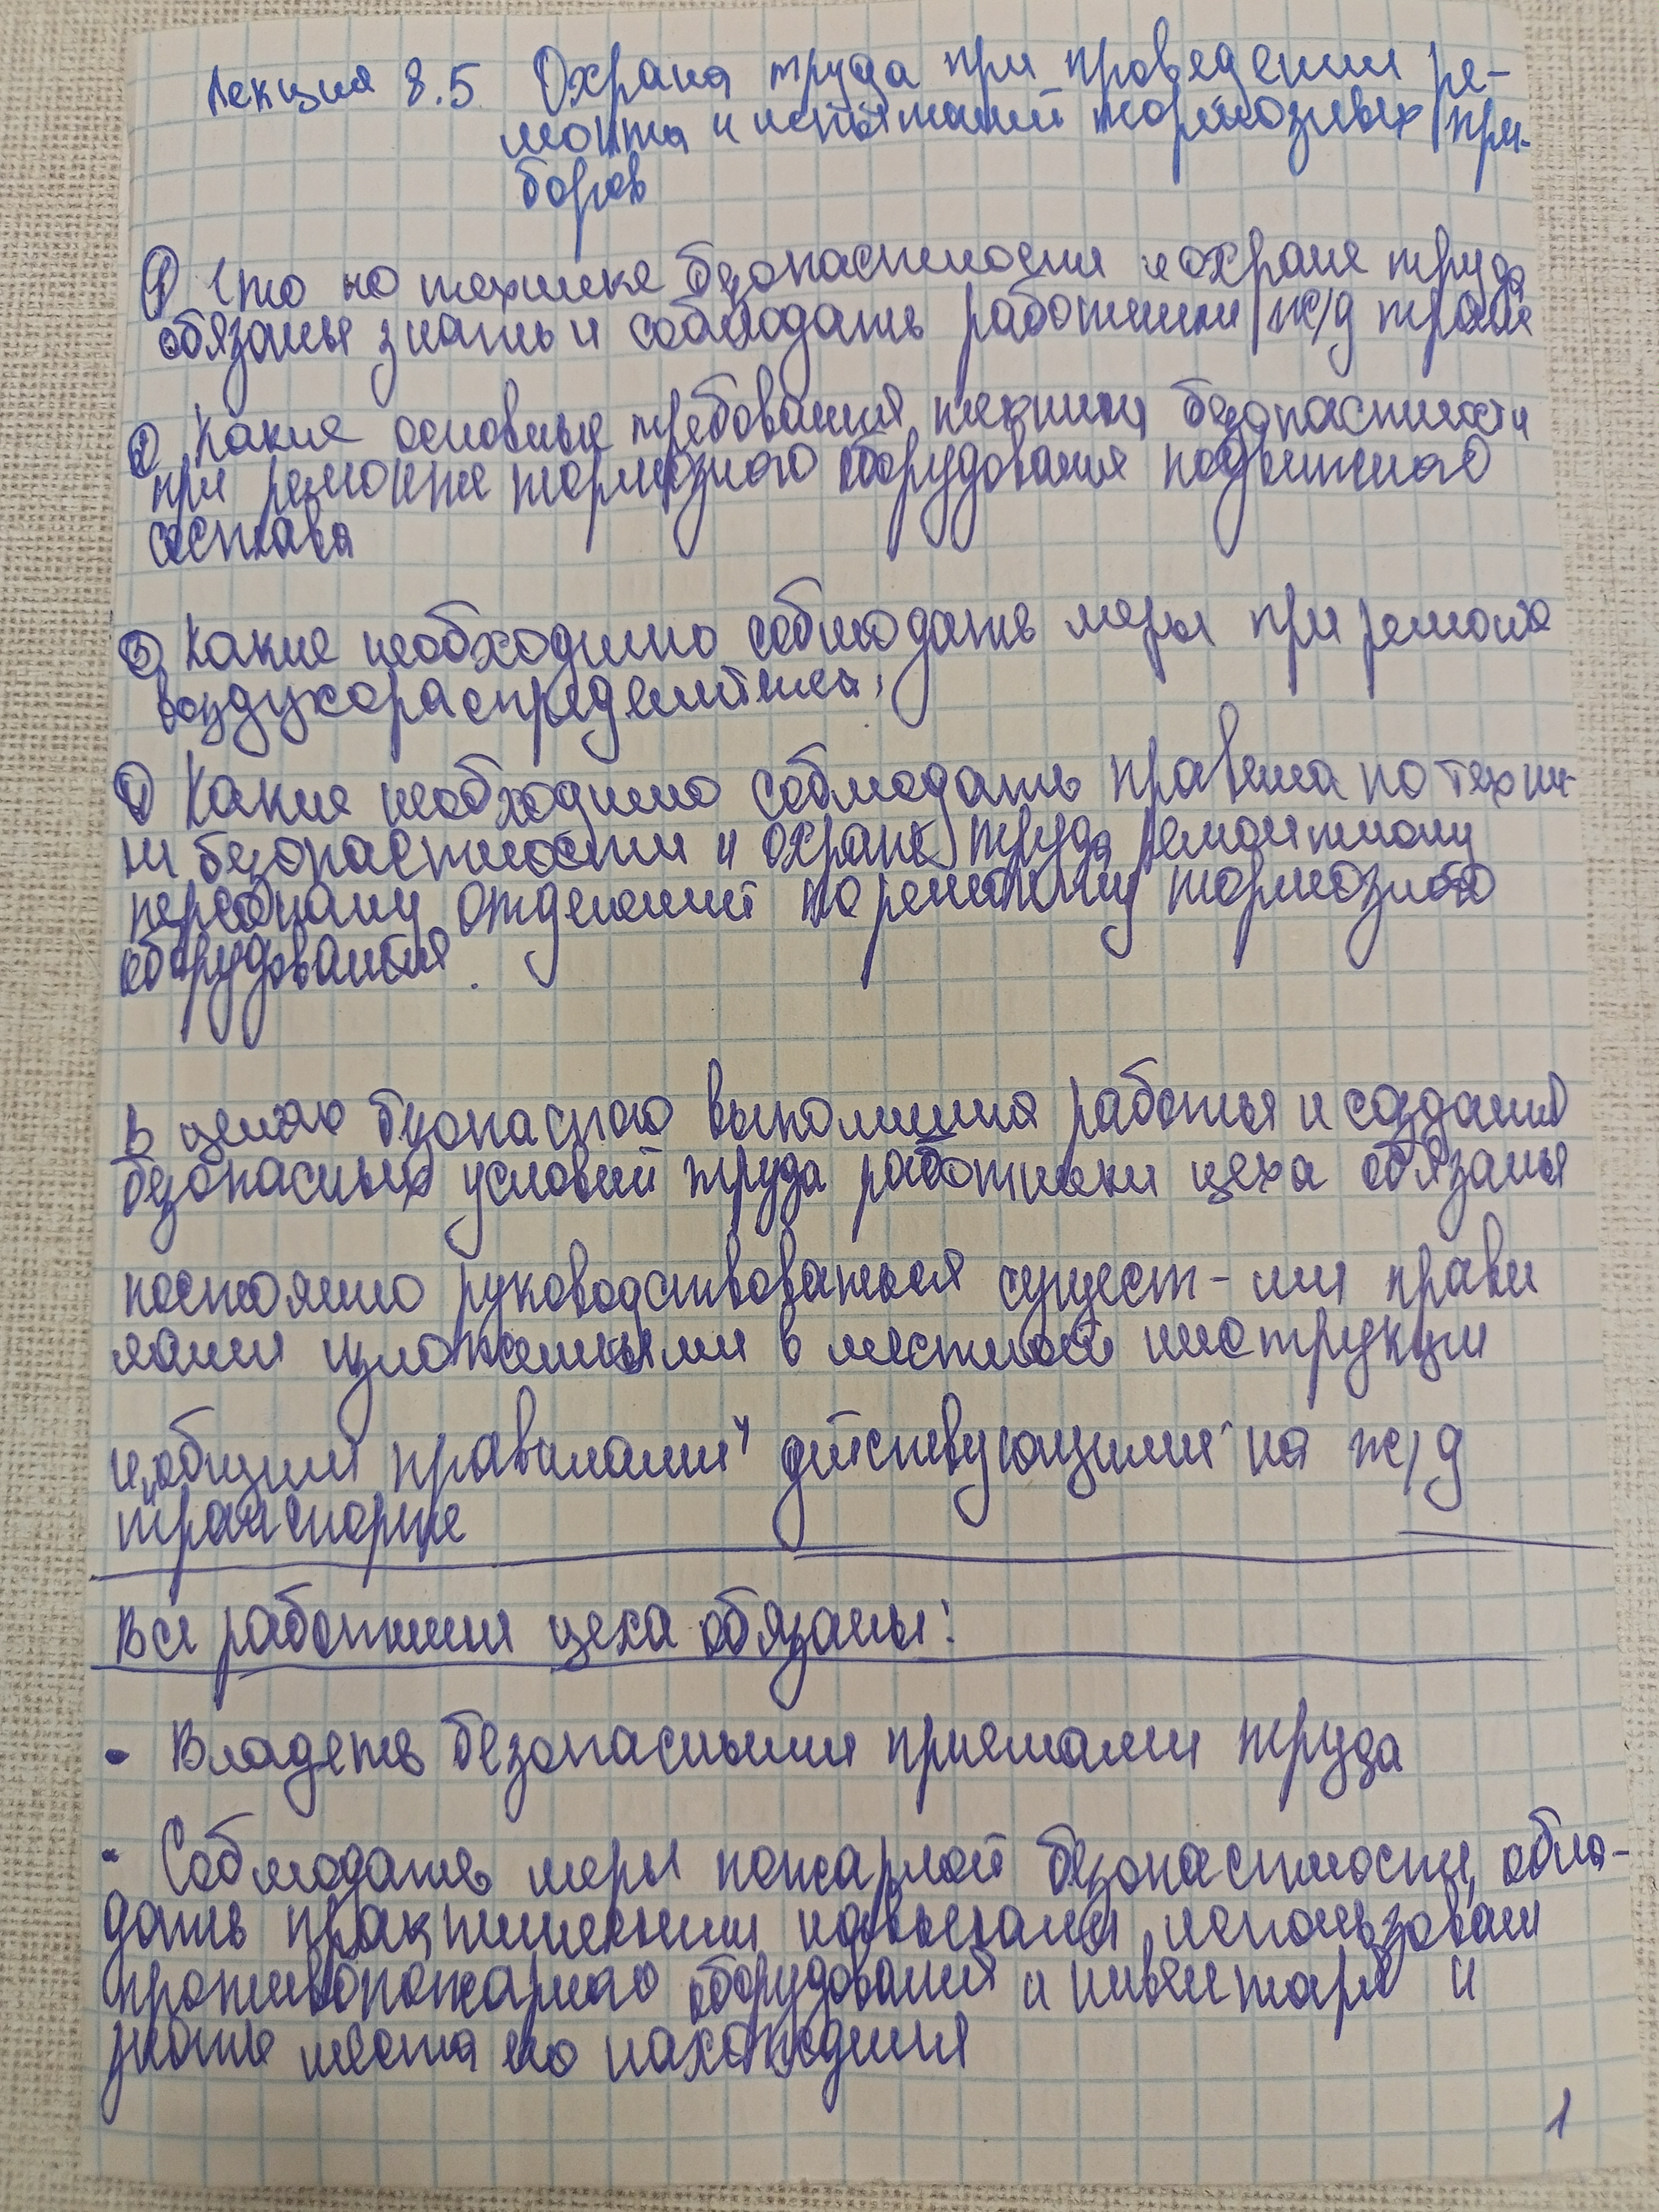 Лекция 8.5 Охрана труда при проведении ре-
монта и испытаний тормозных при-
боров
① Что по технике безопасности и охране труда
обязаны знать и соблюдать работники ж/д тран
② Какие основные требования техники безопасности
при ремонте тормозного оборудования подвижного
состава
③ Какие необходимо соблюдать меры при ремонте
воздухораспределителя,
④ Какие необходимо соблюдать правила по техни-
ки безопасности и охране труда ремонтному
персоналу отделений по ремонту тормозного
оборудования.
В целях безопасного выполнения работы и создания
безопасных условий труда работники цеха обязаны
постоянно руководствоваться сущест-ми прави
лами изложенными в местной инструкции
и „общими правилами“ действующими на ж/д
транспорте
Все работники цеха обязаны:
• Владеть безопасными приемами труда
• Соблюдать меры пожарной безопасности, обла-
дать практическими навыками использован
противопожарного оборудования и инвентаря и
знать места его нахождения
1